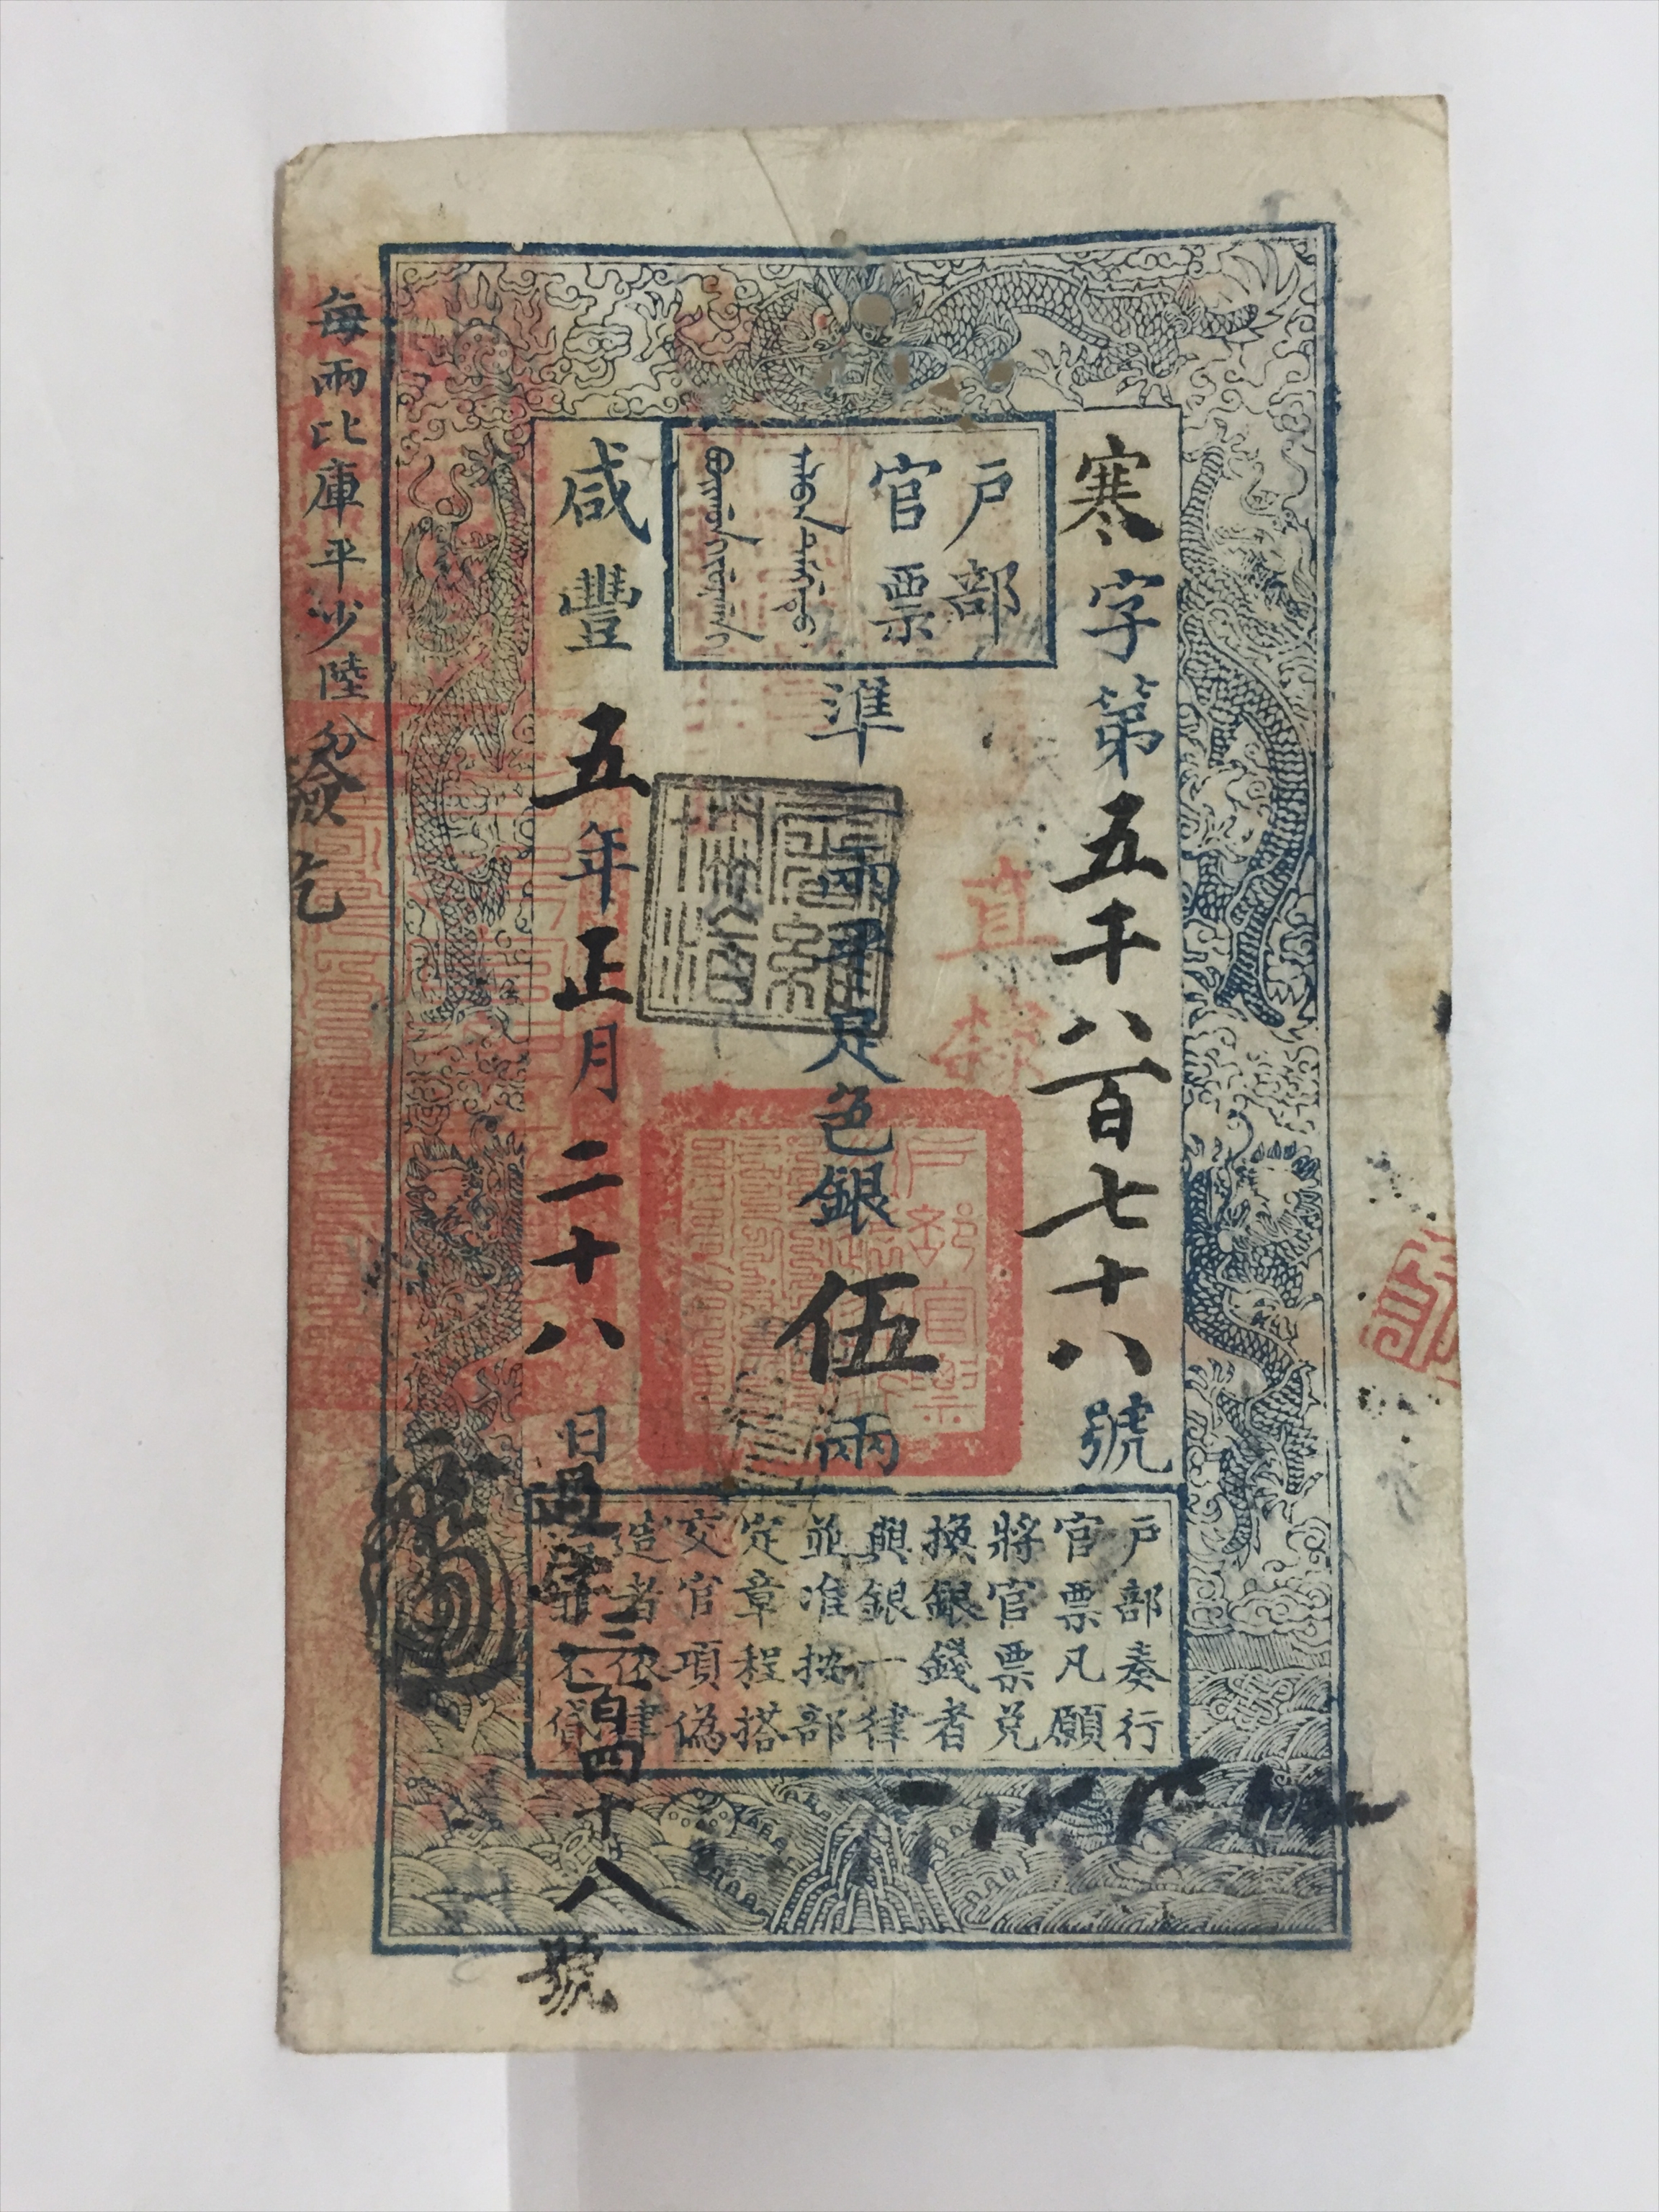 寒字第五千八百七十八號
戶部
官票
準二兩平足色銀伍兩
咸豐五年正月二十八日
每兩比庫平少陸分
直隸
戶部奏行
官票凡願
將官票兌
換銀錢者
與銀一律
並准按部
定章程搭
交官項偽
造者依律
不貸
三百四十八號